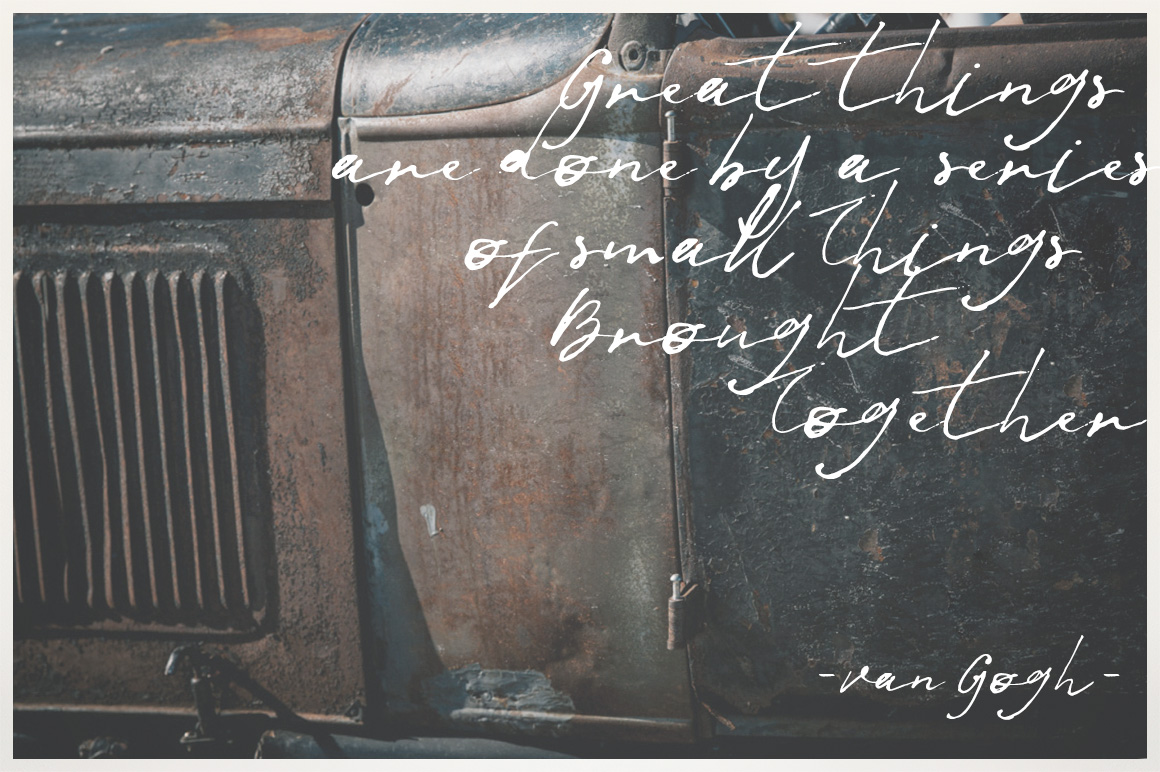 Great things
are done by a series
of small things
Brought
together
-van Gogh-